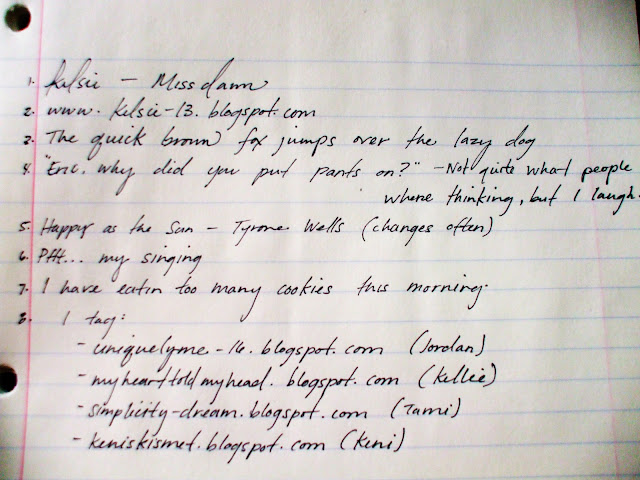 1. Kelsie - Miss dawn
2. www.kelsie-13.blogspot.com
3. The quick brown fox jumps over the lazy dog
4. "Eric, why did you put pants on?" - Not quite what people
where thinking, but I laugh.
5. Happy as the Sun - Tyrone Wells (changes often)
6. Pfft... my singing
7. I have eatin too many cookies this morning.
8. I tag:
- uniquelyme-16.blogspot.com (Jordan)
- myhearttoldmyhead.blogspot.com (Kellie)
- simplicity-dream.blogspot.com (Tami)
- keniskismet.blogspot.com (Keni)